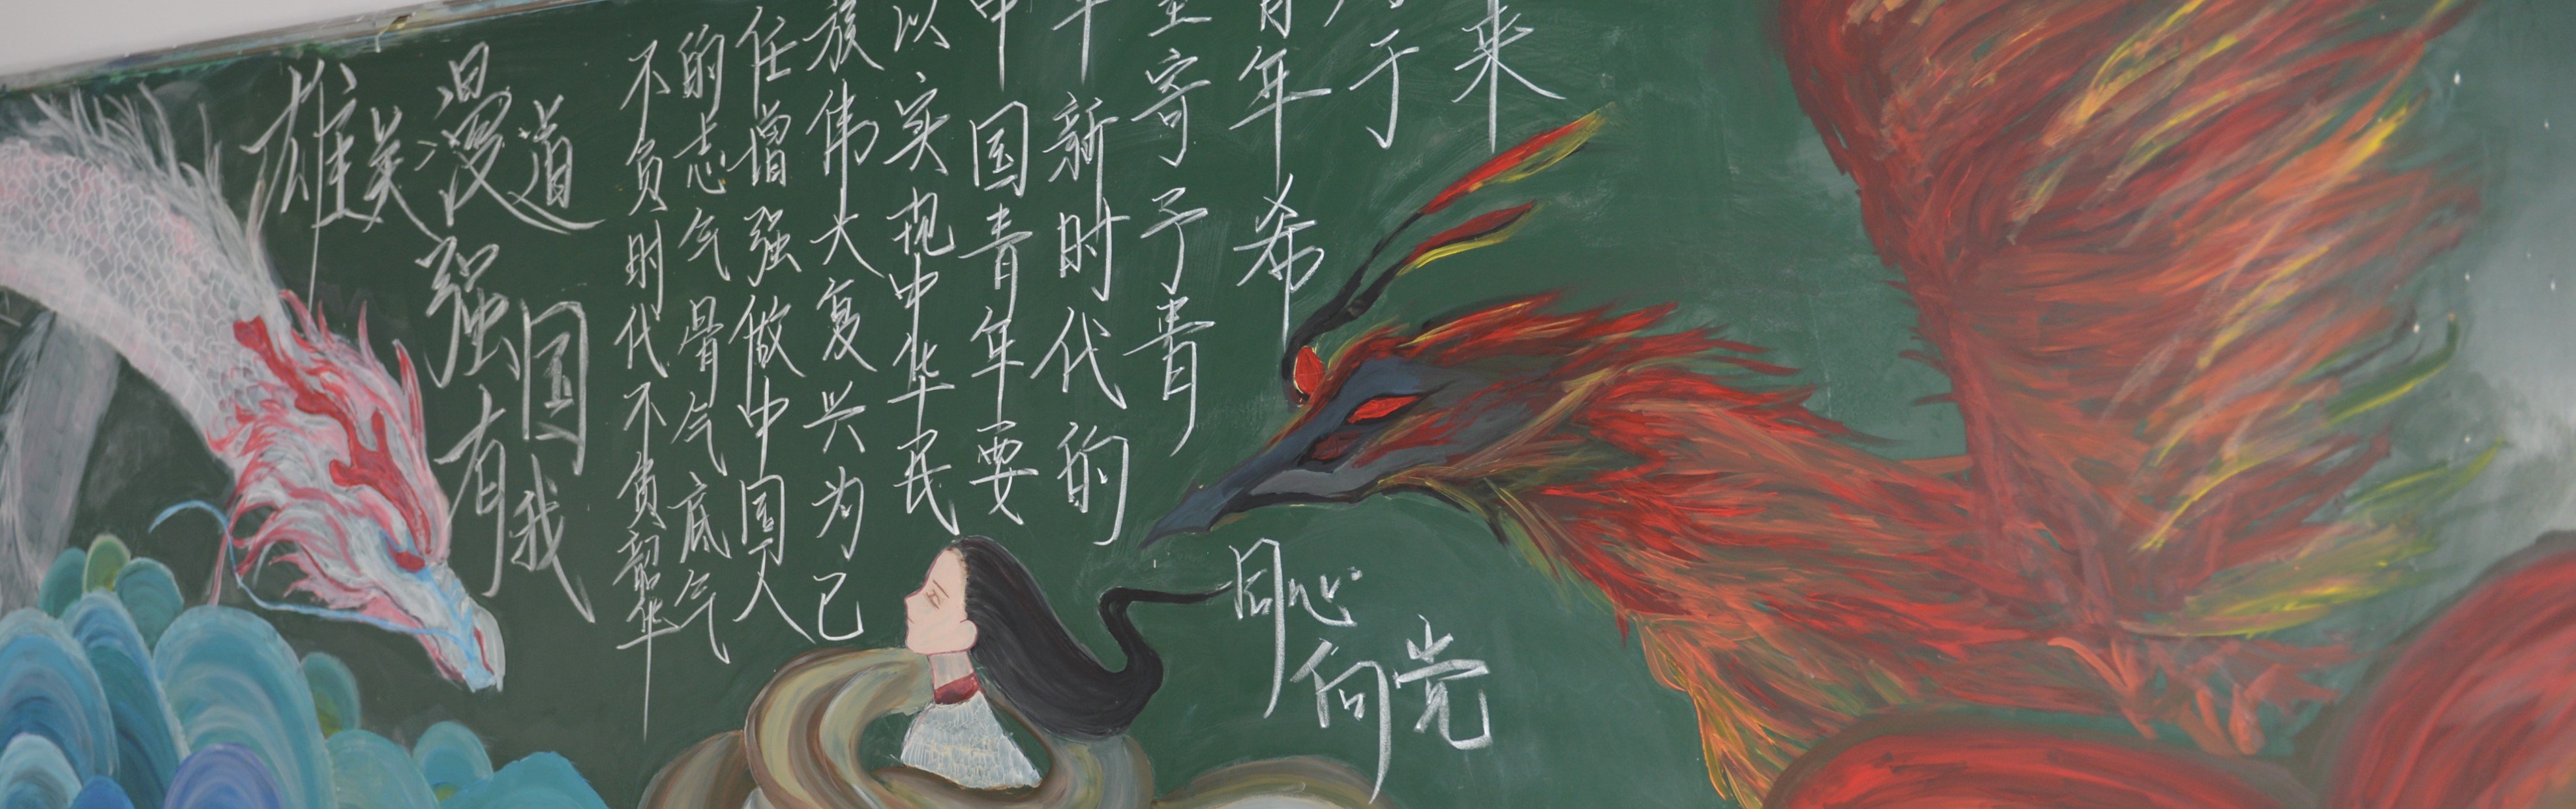 来
于
青年希
望寄予青
年新时代的
中国青年要
以实现中华民
族伟大复兴为己
任增强做中国人
的志气骨气底气
不负时代不负韶华
雄关漫道
强国
有我
同心
向党